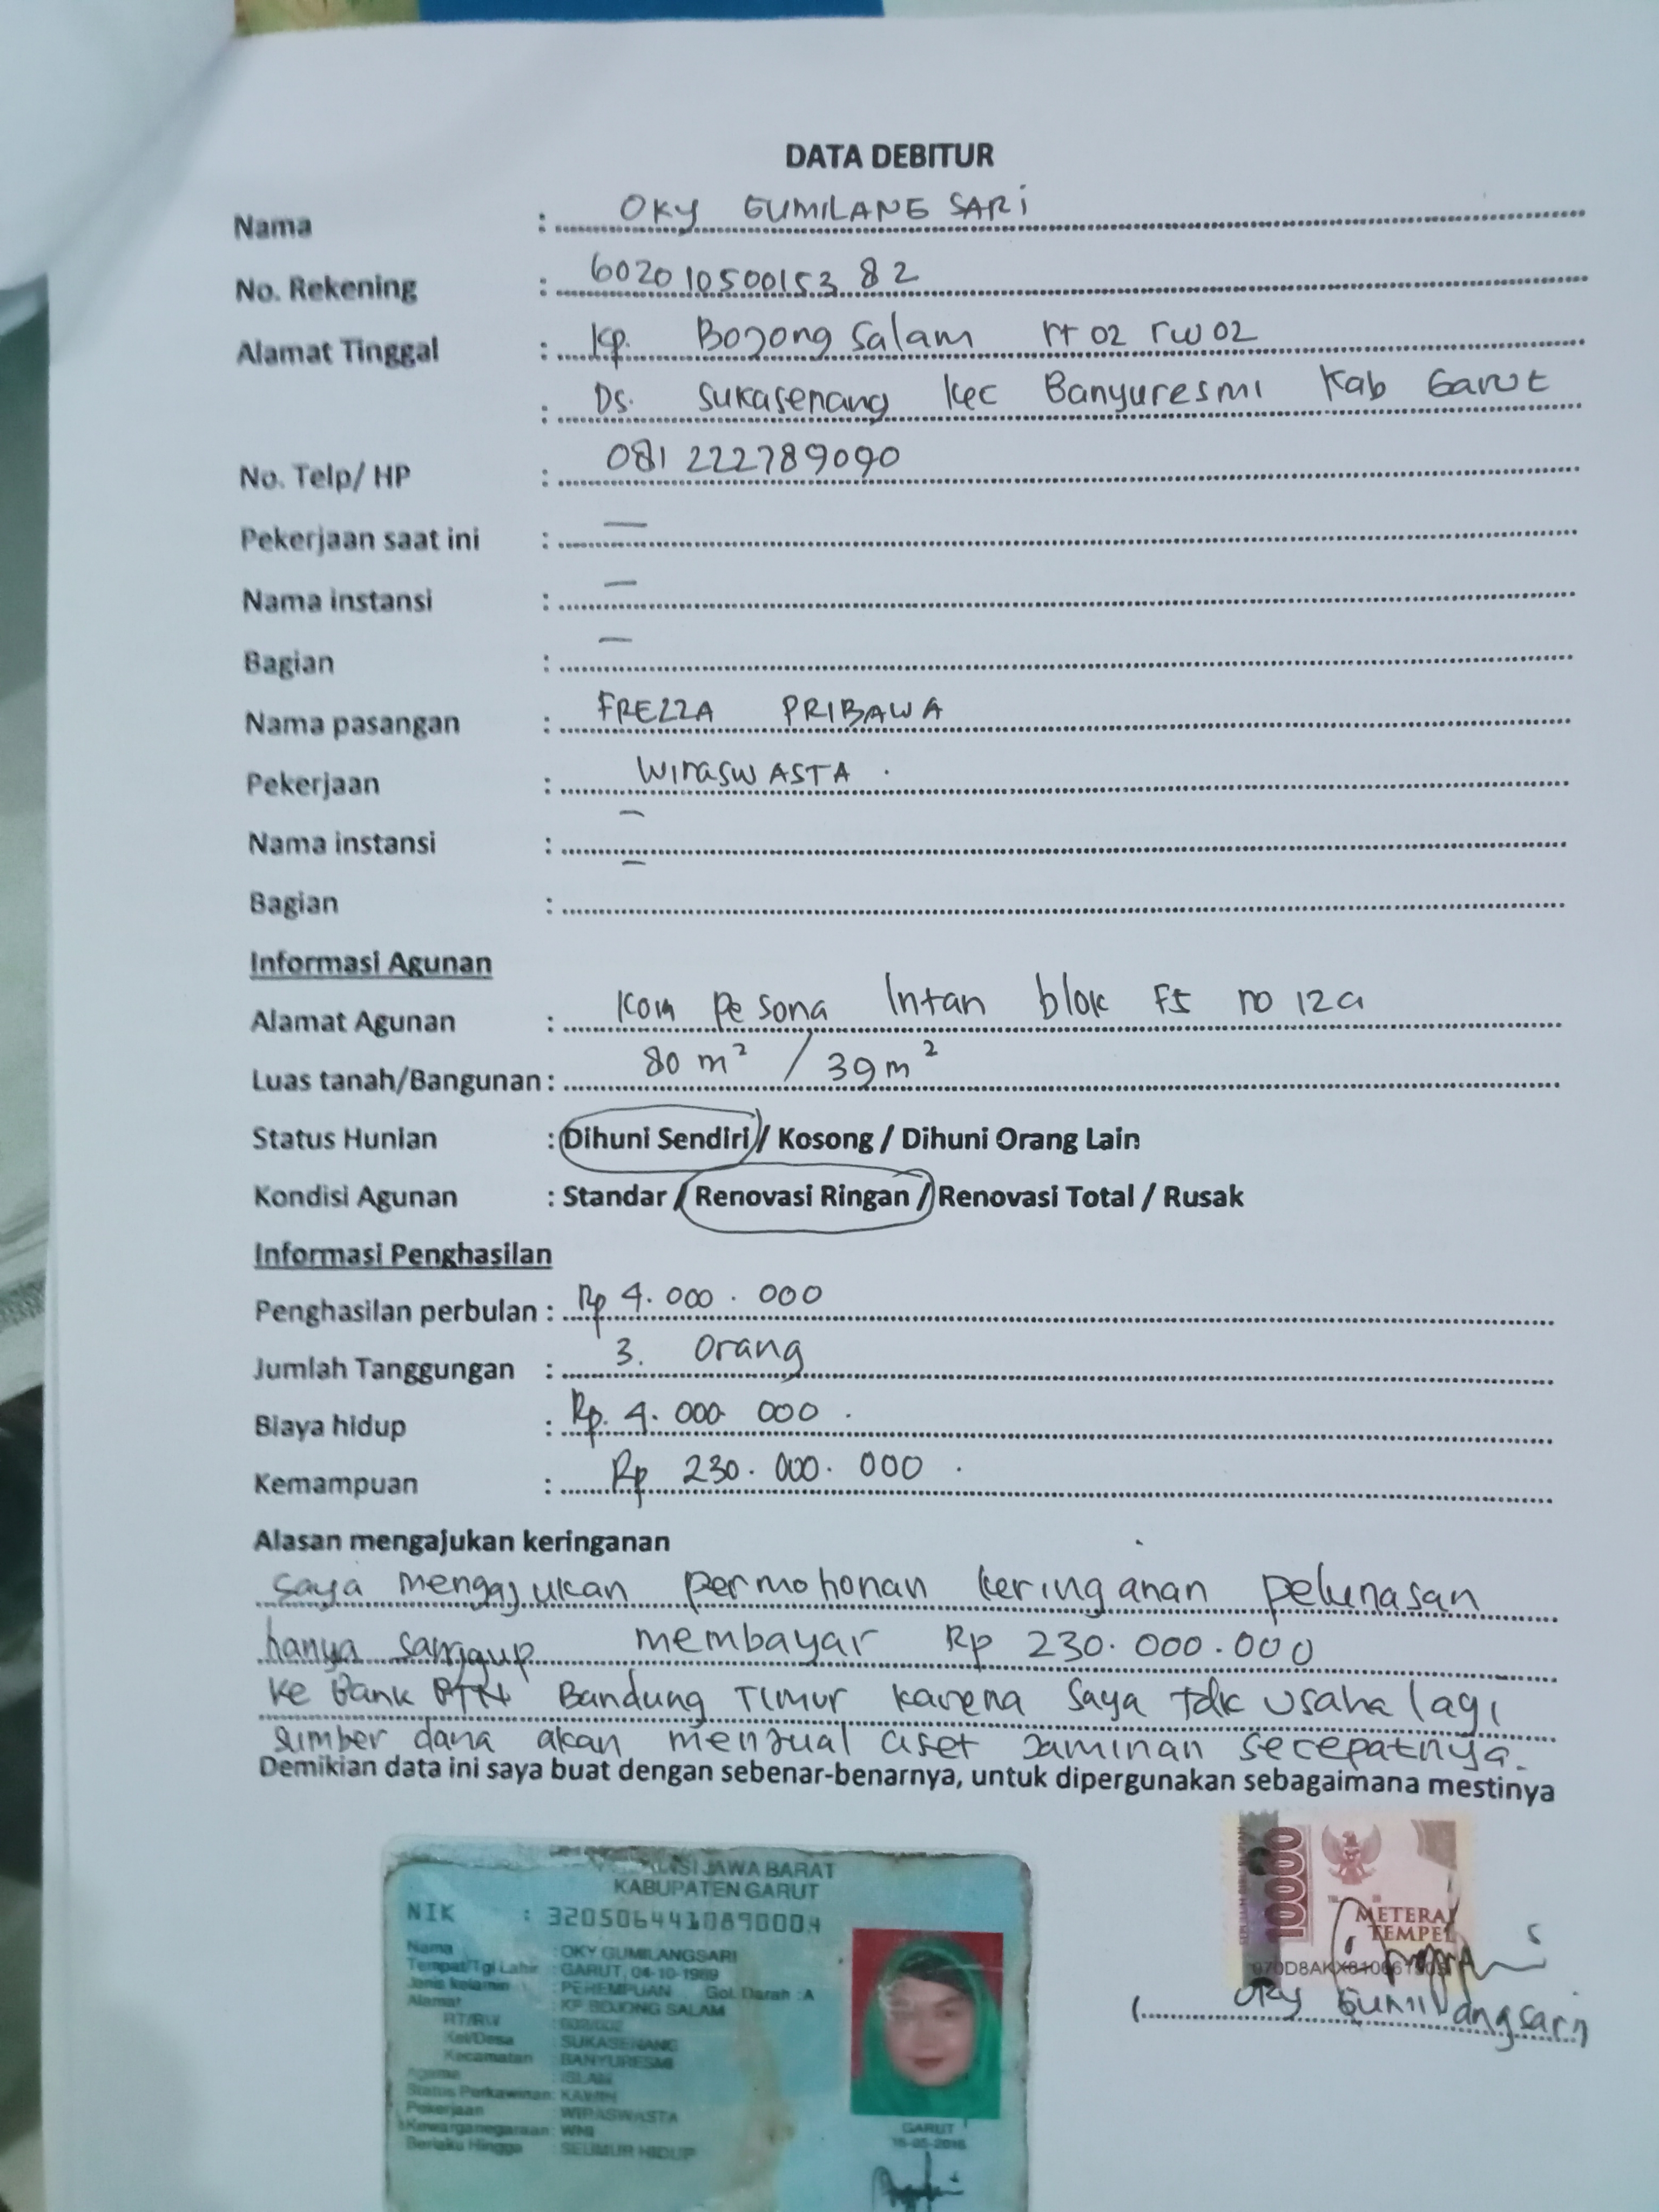 DATA DEBITUR
Nama : OKY GUMILANG SARI
No. Rekening : 60201050015382
Alamat Tinggal : Kp. Bojong Salam rt 02 rw 02
: Ds. Sukasenang Kec Banyuresmi Kab Garut
No. Telp/ HP : 081222789090
Pekerjaan saat ini : —
Nama instansi : —
Bagian : —
Nama pasangan : FREZZA PRIBAWA
Pekerjaan : WIraswASTA .
Nama instansi : —
Bagian : —
Informasi Agunan
Alamat Agunan : Kom Pesona Intan blok F5 no 12a
Luas tanah/Bangunan : 80 m² / 39 m²
Status Hunian : Dihuni Sendiri / Kosong / Dihuni Orang Lain
Kondisi Agunan : Standar / Renovasi Ringan / Renovasi Total / Rusak
Informasi Penghasilan
Penghasilan perbulan : Rp 4.000.000
Jumlah Tanggungan : 3. Orang
Biaya hidup : Rp. 4.000 000 .
Kemampuan : Rp 230.000.000 .
Alasan mengajukan keringanan
saya mengajukan permohonan keringanan pelunasan
hanya sanggup membayar Rp 230.000.000
ke Bank BTN Bandung Timur karena saya tdk usaha lagi
sumber dana akan menjual aset jaminan secepatnya.
Demikian data ini saya buat dengan sebenar-benarnya, untuk dipergunakan sebagaimana mestinya
JAWA BARAT
KABUPATEN GARUT
NIK : 3205064410890004
Nama : OKY GUMILANGSARI
Tempat/Tgl Lahir : GARUT, 04-10-1989
Jenis kelamin : PEREMPUAN Gol. Darah : A
Alamat : KP BOJONG SALAM
RT/RW : 002/002
Kel/Desa : SUKASENANG
Kecamatan : BANYURESMI
Agama : ISLAM
Status Perkawinan: KAWIN
Pekerjaan : WIRASWASTA
Kewarganegaraan: WNI
Berlaku Hingga : SEUMUR HIDUP
GARUT
10000
METERAI
TEMPEL
(Oky Gumilangsari)